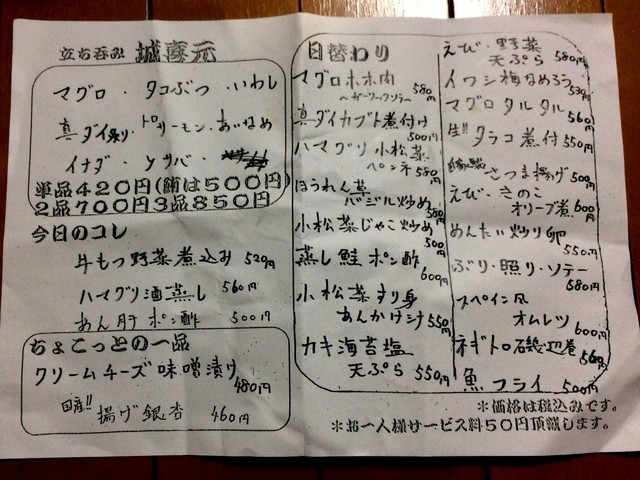 立ち呑み 城喜元
マグロ・タコぶつ・いわし
真ダイ炙り・トロサーモン・あいなめ
イナダ・〆サバ・
単品420円(鮪は500円)
2品700円3品850円
今日のコレ
牛もつ野菜煮込み 520円
ハマグリ酒蒸し 560円
あん肝ポン酢 500円
ちょこっとの一品
クリームチーズ味噌漬け
480円
国産!! 揚げ銀杏 460円
日替わり
マグロホホ肉 580円
〜ガーリックソテー〜
真ダイカブト煮付け
500円
ハマグリ小松菜
ペンネ 580円
ほうれん草
バジル炒め 580円
小松菜じゃこ炒め
500円
蒸し鮭ポン酢
600円
小松菜すり身
あんかけ汁 550円
カキ海苔塩
天ぷら 550円
えび・野菜
天ぷら 580円
イワシ梅なめろう
530円
マグロタルタル
560円
生!! タラコ煮付 550円
さつま揚げ 500円
えび・きのこ
オリーブ煮 600円
めんたい炒り卵
550円
ぶり・照り・ソテー
580円
スペイン風
オムレツ
600円
ネギトロ磯辺巻
560円
魚フライ 500円
※価格は税込みです。
※お一人様サービス料50円頂戴します。